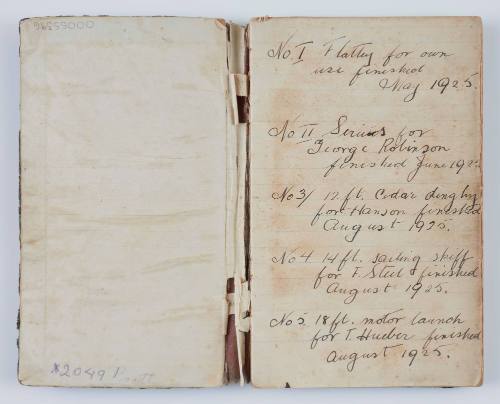 00055596
No I Flatty for own
use finished
May 1925.
No II Serius for
George Robinson
finished June 192
No 3/ 12 ft. Cedar dinghy
for Hanson finished
August 1925.
No 4. 14 ft. sailing skiff
for F. Steel finished
August 1925.
No 5. 18 ft. motor launch
for T. Hueber finished
August 1925.